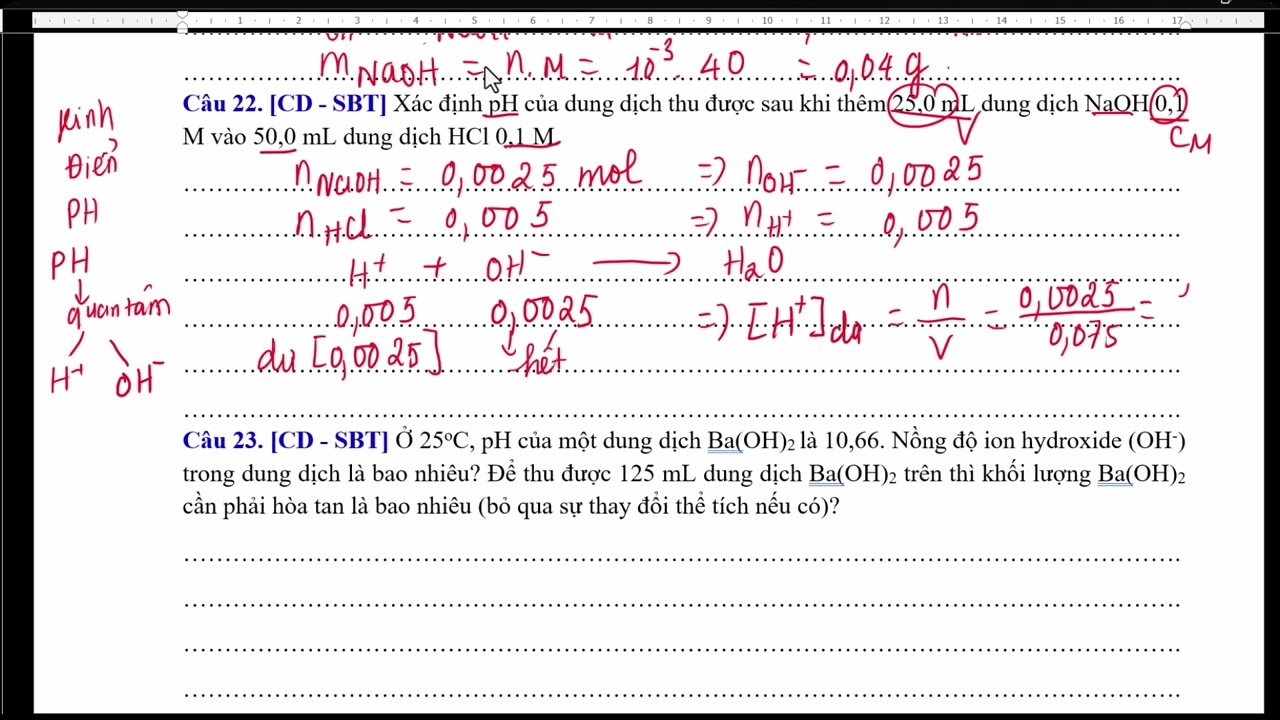 1 2 3 4 5 6 7 8 9 10 11 12 13 14 15 16 17
m NaOH = n.M = 10⁻³. 40 = 0,04 g
Câu 22. [CD - SBT] Xác định pH của dung dịch thu được sau khi thêm 25,0 mL dung dịch NaOH 0,1
M vào 50,0 mL dung dịch HCl 0,1 M.
V
CM
Kinh
Điển
PH
PH
↓
quan tâm
H⁺ OH⁻
n NaOH = 0,0025 mol => n OH⁻ = 0,0025
n HCl = 0,005 => n H⁺ = 0,005
H⁺ + OH⁻ ⟶ H₂O
0,005 0,0025 => [H⁺] dư = n/V = 0,0025/0,075 =
dư [0,0025] hết
Câu 23. [CD - SBT] Ở 25ᵒC, pH của một dung dịch Ba(OH)₂ là 10,66. Nồng độ ion hydroxide (OH⁻)
trong dung dịch là bao nhiêu? Để thu được 125 mL dung dịch Ba(OH)₂ trên thì khối lượng Ba(OH)₂
cần phải hòa tan là bao nhiêu (bỏ qua sự thay đổi thể tích nếu có)?